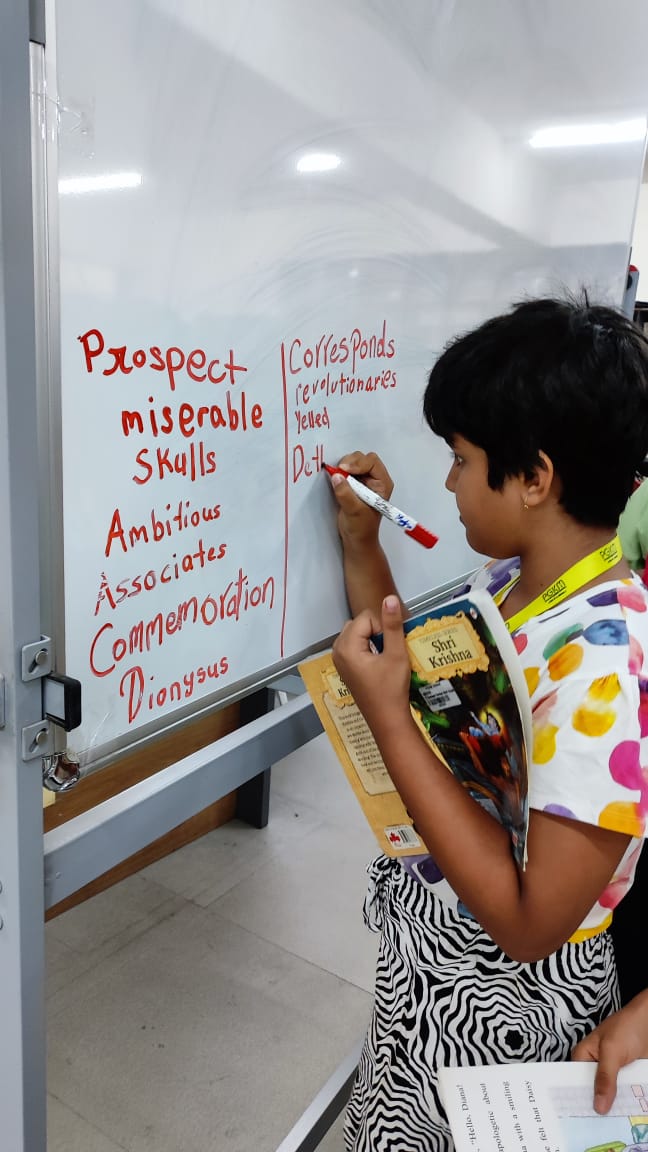 Prospect
miserable
Skulls
Ambitious
Associates
Commemoration
Dionysus
Corresponds
revolutionaries
Yelled
Shri
Krishna
PGKM
"Hello, Diana!
apologetic about
with a smiling
felt that Daisy